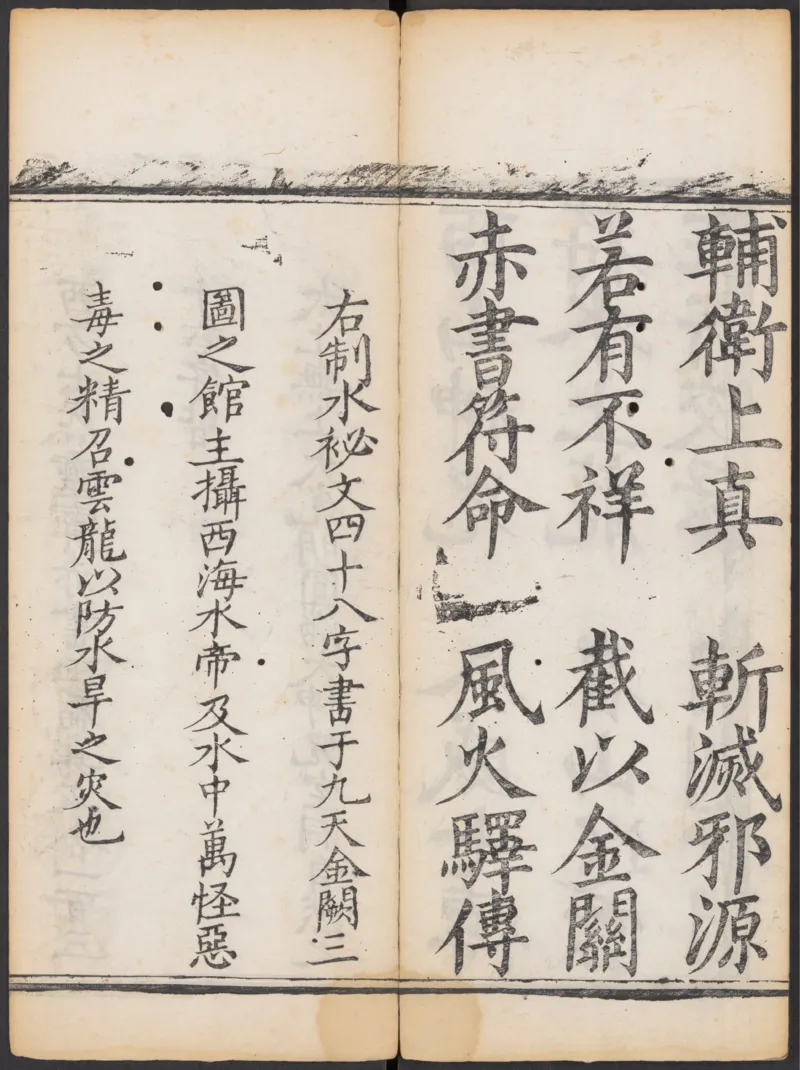 輔衛上真　斬滅邪源
若有不祥　截以金關
赤書符命　風火驛傳
右制水祕文四十八字書于九天金闕三
圖之館主攝西海水帝及水中萬怪惡
毒之精召雲龍以防水旱之灾也